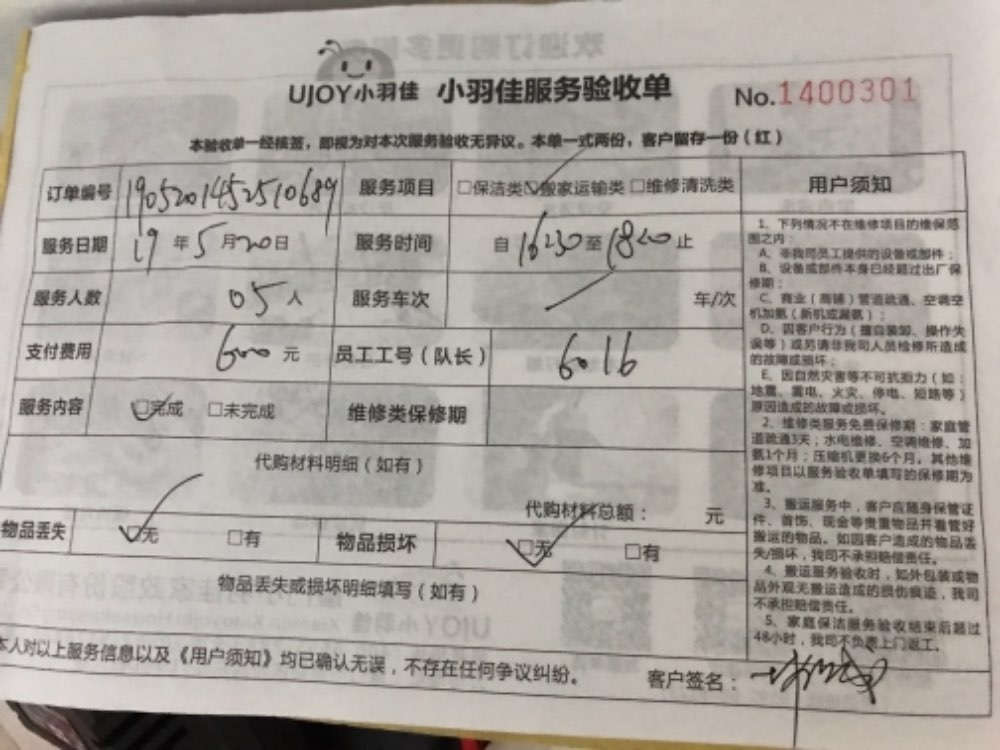 UJOY小羽佳 小羽佳服务验收单 No.1400301
本验收单一经核签，即视为对本次服务验收无异议。本单一式两份，客户留存一份（红）
订单编号 190520145251068 服务项目 □保洁类 □搬家运输类 □维修清洗类
服务日期 19年5月20日 服务时间 自1630至1820止
服务人数 05人 服务车次 年/次
支付费用 600元 员工工号（队长） 6016
服务内容 □完成 □未完成 维修类保修期
代购材料明细（如有）
代购材料总额： 元
物品丢失 □无 □有 物品损坏 □无 □有
物品丢失或损坏明细填写（如有）
本人对以上服务信息以及《用户须知》均已确认无误，不存在任何争议纠纷。
客户签名：
用户须知
1、下列情况不在维修项目的维保范
围之内：
A、非我司员工提供的设备或部件；
B、设备或部件本身已经超过出厂保
修期；
C、商业（商铺）管道疏通、空调空
机加氨（新机或漏氨）；
D、因客户行为（擅自装卸、操作失
误等）或另请非我司人员检修所造成
的故障或损坏；
E、因自然灾害等不可抗拒力（如：
地震、雷电、火灾、停电、短路等）
原因造成的故障或损坏。
2、维修类服务免费保修期：家庭管
道疏通3天；水电维修、空调维修、加
氨1个月；压缩机更换6个月。其他维
修项目以服务验收单填写的保修期为
准。
3、搬运服务中，客户应随身保管证
件、首饰、现金等贵重物品并看管好
搬运的物品。如因客户造成的物品丢
失/损坏，我司不承担赔偿责任。
4、搬运服务验收时，如外包装或物
品外观无搬运造成的损伤痕迹，我司
不承担赔偿责任。
5、家庭保洁服务验收结束后超过
48小时，我司不负责上门返工。